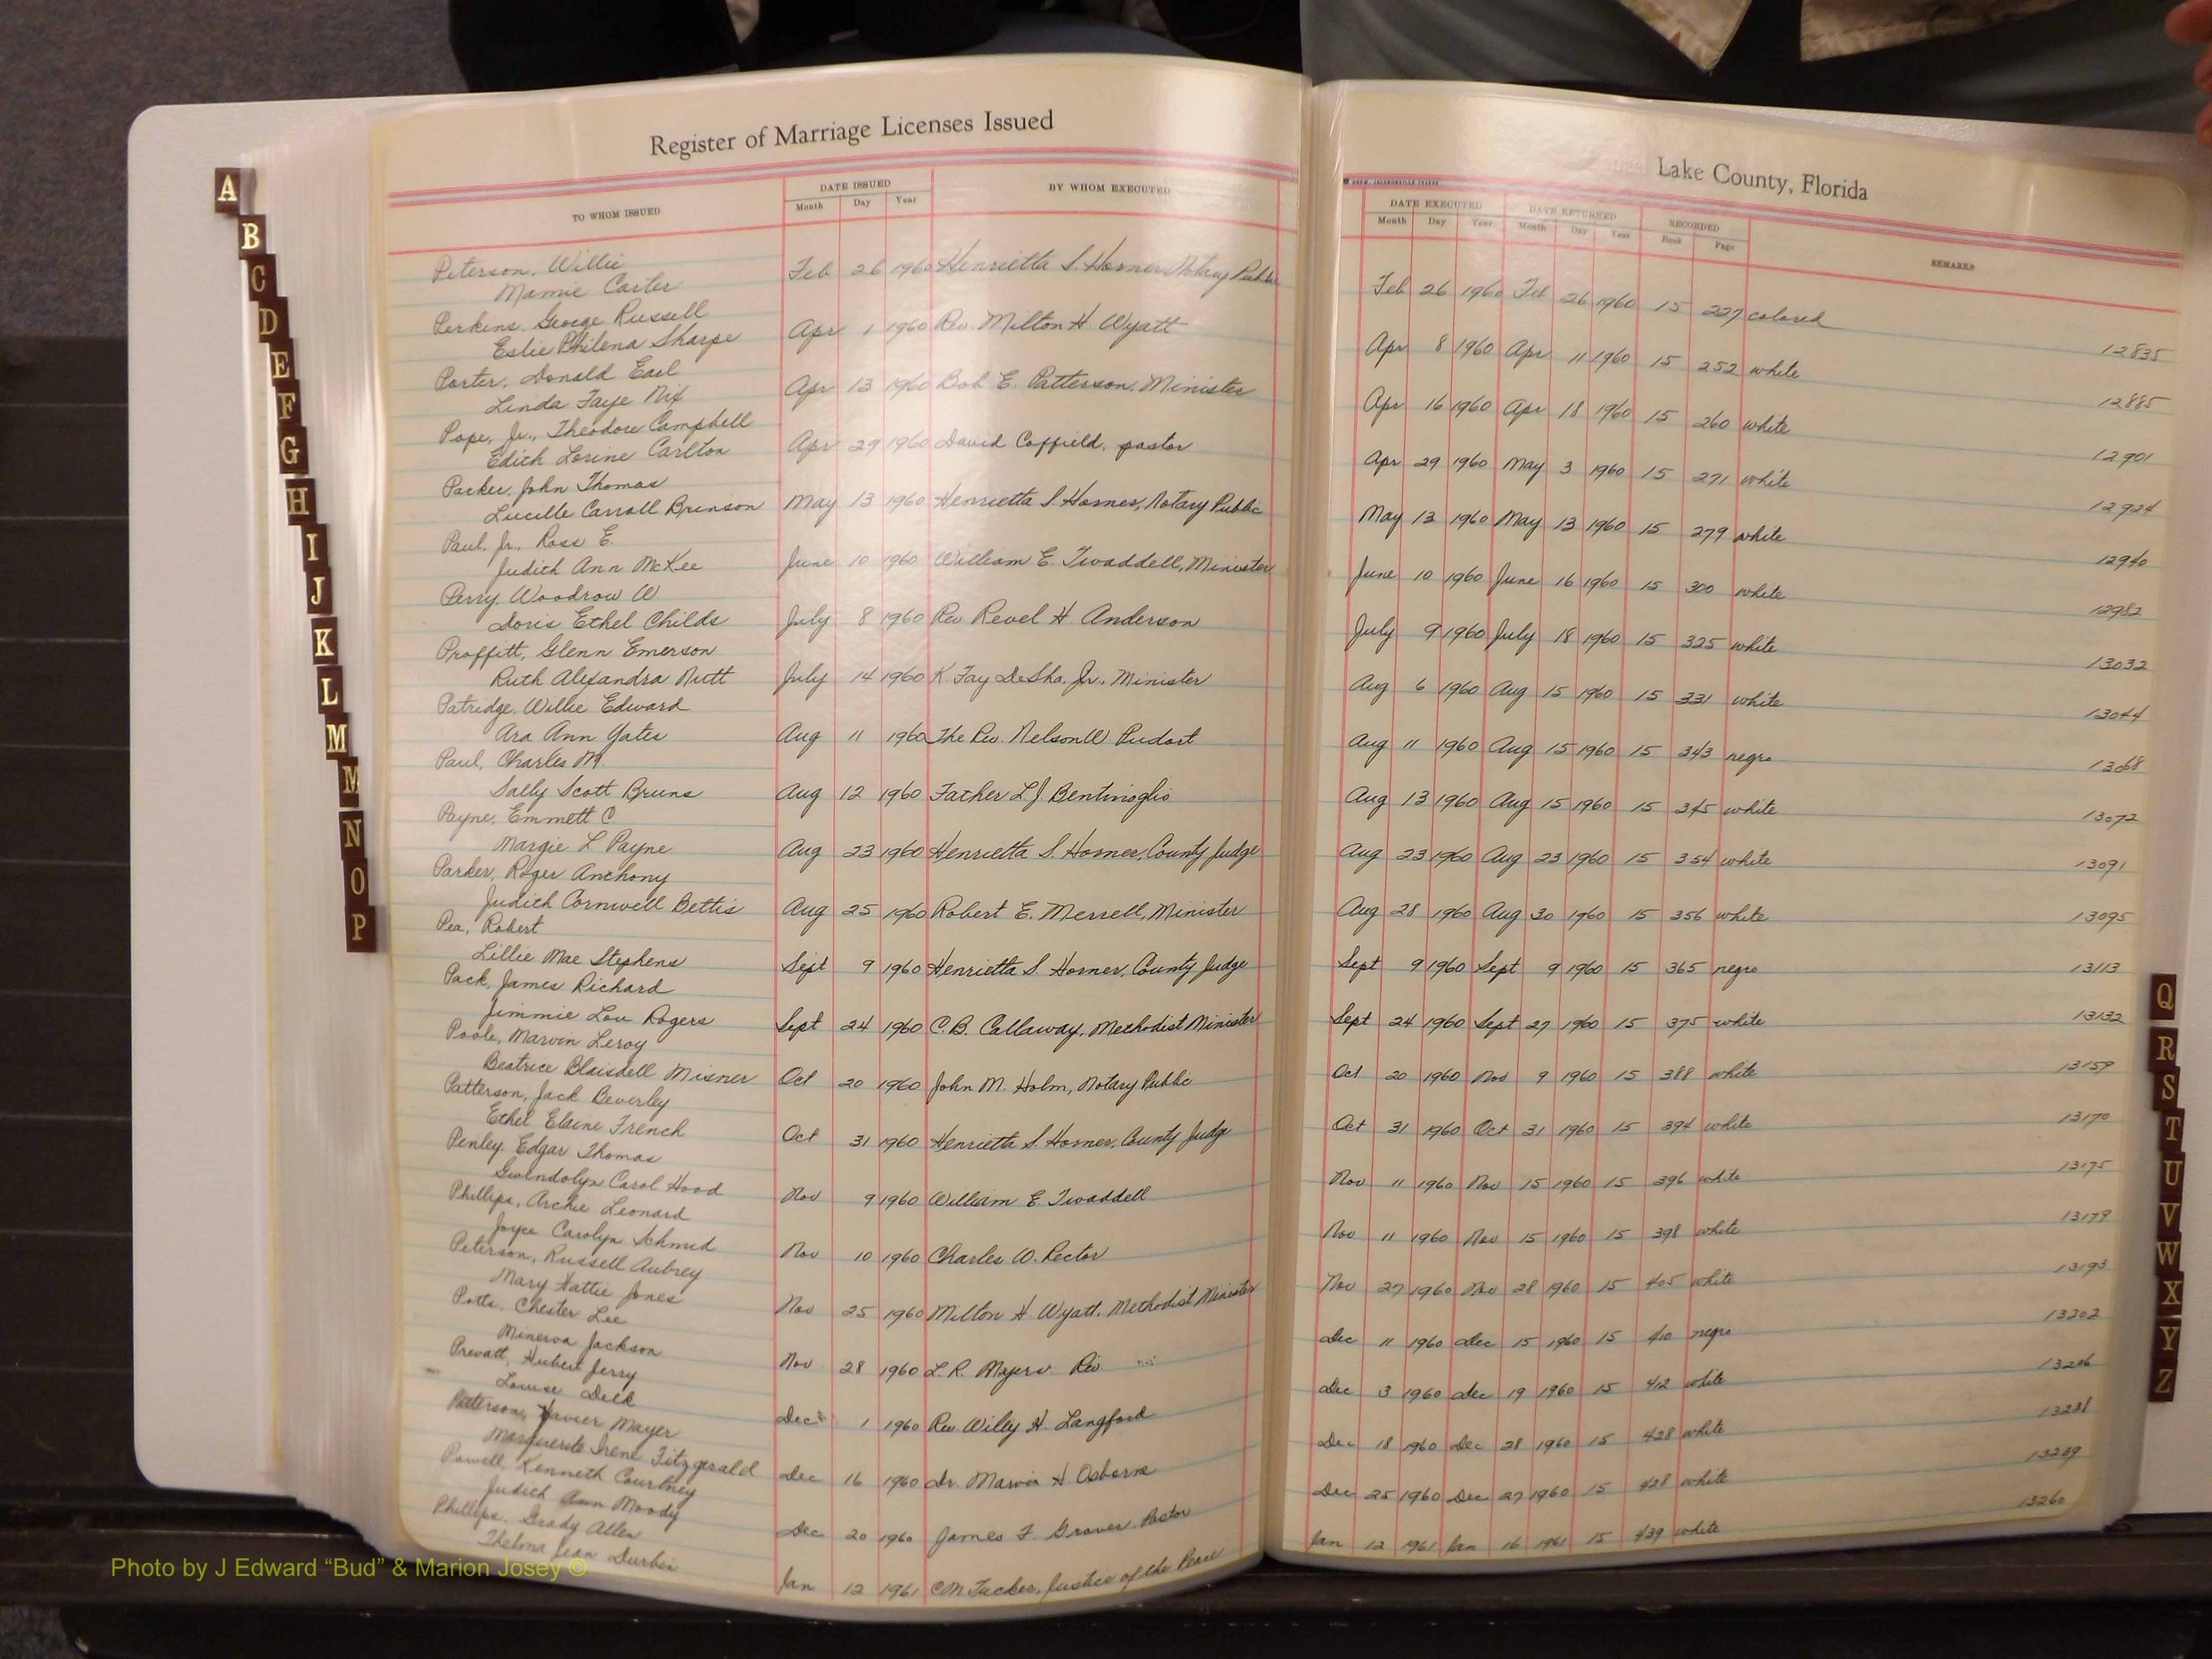 Register of Marriage Licenses Issued
Lake County, Florida
TO WHOM ISSUED DATE ISSUED Month Day Year BY WHOM EXECUTED
DATE EXECUTED Month Day Year DATE RETURNED Month Day Year RECORDED Book Page REMARKS
Peterson, Willie
Mamie Carter
Feb 26 1960 Henrietta S. Horner Notary Public Feb 26 1960 Feb 26 1960 15 227 colored 12835
Perkins, George Russell
Eslie Philena Sharpe
Apr 1 1960 Rev. Milton H Wyatt Apr 8 1960 Apr 11 1960 15 252 white 12885
Porter, Donald Earl
Linda Faye Nix
Apr 13 1960 Bob E. Patterson, Minister Apr 16 1960 Apr 18 1960 15 260 white 12901
Pope, Jr., Theodore Campbell
Edith Lorine Carlton
Apr 29 1960 David Coffield, pastor Apr 29 1960 May 3 1960 15 271 white 12924
Parker, John Thomas
Lucille Carroll Brinson
May 13 1960 Henrietta S. Horner, Notary Public May 13 1960 May 13 1960 15 279 white 12940
Paul, Jr., Ross E.
Judith Ann McKee
June 10 1960 William E. Twaddell, Minister June 10 1960 June 16 1960 15 300 white 12982
Perry, Woodrow W.
Doris Ethel Childs
July 8 1960 Rev Revel H. Anderson July 9 1960 July 18 1960 15 325 white 13032
Proffitt, Glenn Emerson
Ruth Alexandra Nutt
July 14 1960 K Fay DeSha, Jr., Minister Aug 6 1960 Aug 15 1960 15 331 white 13044
Patridge, Willie Edward
Ara Ann Yates
Aug 11 1960 The Rev. Nelson W. Aug 11 1960 Aug 15 1960 15 343 negro 13068
Paul, Charles M.
Sally Scott Bruns
Aug 12 1960 Father L.J. Bentivoglio Aug 13 1960 Aug 15 1960 15 345 white 13072
Payne, Emmett C
Margie L Payne
Aug 23 1960 Henrietta S. Horner, County Judge Aug 23 1960 Aug 23 1960 15 354 white 13091
Parker, Roger Anthony
Judith Cornwell Bettis
Aug 25 1960 Robert E. Merrell, Minister Aug 28 1960 Aug 30 1960 15 356 white 13095
Pea, Robert
Lillie Mae Stephens
Sept 9 1960 Henrietta S. Horner, County Judge Sept 9 1960 Sept 9 1960 15 365 negro 13113
Pack, James Richard
Jimmie Lou Rogers
Sept 24 1960 C.B. Callaway, Methodist Minister Sept 24 1960 Sept 27 1960 15 375 white 13132
Poole, Marvin Leroy
Beatrice Blaisdell Misner
Oct 20 1960 John M. Holm, Notary Public Oct 20 1960 Nov 9 1960 15 388 white 13159
Patterson, Jack Beverley
Ethel Elaine French
Oct 31 1960 Henrietta S Horner, County Judge Oct 31 1960 Oct 31 1960 15 394 white 13170
Penley, Edgar Thomas
Gwendolyn Carol Hood
Nov 9 1960 William E Twaddell Nov 11 1960 Nov 15 1960 15 396 white 13175
Phillips, Archie Leonard
Joyce Carolyn Schmid
Nov 10 1960 Charles W. Rector Nov 11 1960 Nov 15 1960 15 398 white 13179
Peterson, Russell Aubrey
Mary Hattie Jones
Nov 25 1960 Milton H. Wyatt, Methodist Minister Nov 27 1960 Nov 28 1960 15 405 white 13193
Potts, Chester Lee
Minerva Jackson
Nov 28 1960 L.R. Rev Dec 11 1960 Dec 15 1960 15 410 negro 13202
Prevatt, Hubert Jerry
Louise Delk
Dec 1 1960 Rev. Willy H. Langford Dec 3 1960 Dec 19 1960 15 412 white 13206
Patterson, Xavier Mayer
Marguerite Irene Fitzgerald
Dec 16 1960 Dr. Marvin H. Osborne Dec 18 1960 Dec 28 1960 15 428 white 13238
Powell, Kenneth Courtney
Judith Ann Moody
Dec 20 1960 James F Graver, Pastor Dec 25 1960 Dec 27 1960 15 428 white 13239
Phillips, Grady Allen
Thelma Jean Durbin
Jan 12 1961 C.M. Tucker, Justice of the Peace Jan 12 1961 Jan 16 1961 15 439 white 13260
A
B
C
D
E
F
G
H
I
J
K
L
M
M
N
O
P
Q
R
S
T
U
V
W
X
Y
Z
Photo by J Edward "Bud" & Marion Josey ©